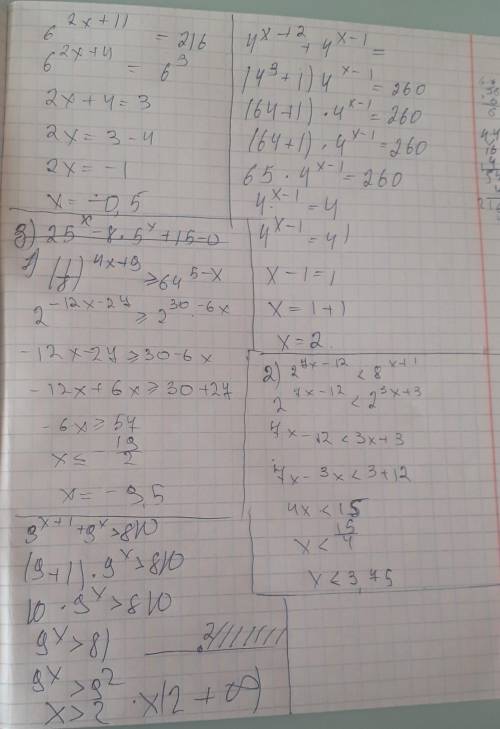 6^(2x+11) = 216
6^(2x+4) = 6^3
2x+4=3
2x=3-4
2x=-1
x=-0,5
3) 25^x-8·5^x+15=0
1) (1/8)^(4x+9) ≥64^(5-x)
2^(-12x-27) ≥2^(30-6x)
-12x-27≥30-6x
-12x+6x≥30+27
-6x≥57
x≤ -19/2
x=-9,5
9^(x+1)+9^x>810
(9+1)·9^x>810
10·9^x>810
9^x>81
9^x>9^2
x>2 · x(2+∞)
2
4^(x+2)+4^(x-1)=
(4^3+1)4^(x-1)=260
(64+1)·4^(x-1)=260
(64+1)·4^(x-1)=260
65·4^(x-1)=260
4^(x-1)=4
4^(x-1)=4^1
x-1=1
x=1+1
x=2
2) 2^(7x-12)<8^(x+1)
2^(7x-12)<2^(3x+3)
7x-12<3x+3
7x-3x<3+12
4x<15
x<15/4
x<3,75